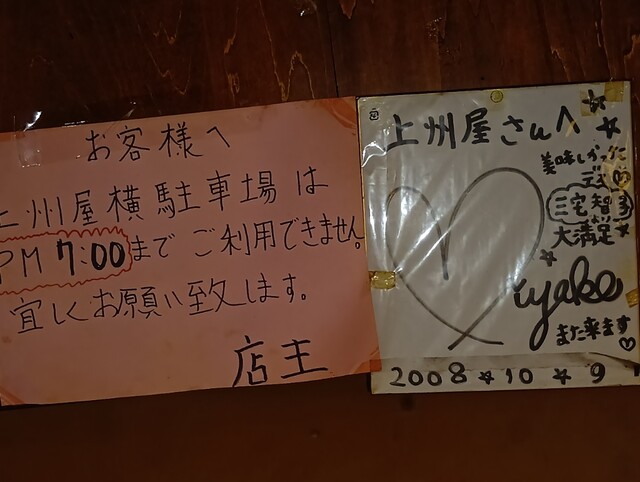 お客様へ
上州屋横駐車場は
PM 7:00までご利用できません。
宜しくお願い致します。
店主
上州屋さんへ
美味しかった
デス
三宅智多
大満足
Miyake
また来ます
2008☆10☆9